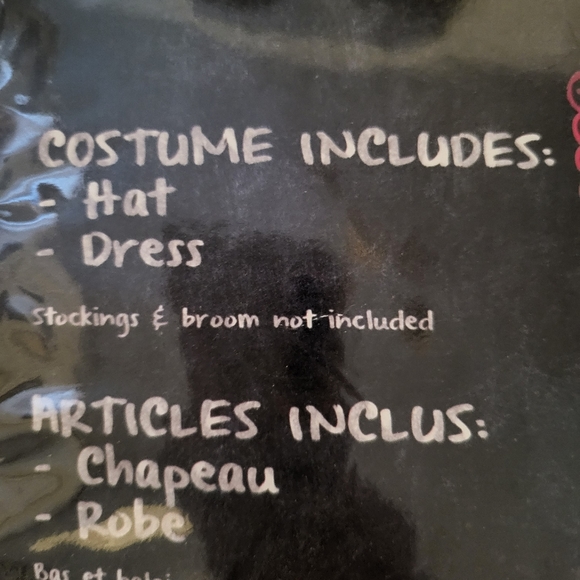 COSTUME INCLUDES:
- Hat
- Dress
Stockings & broom not included
ARTICLES INCLUS:
- Chapeau
- Robe
Bas et balai